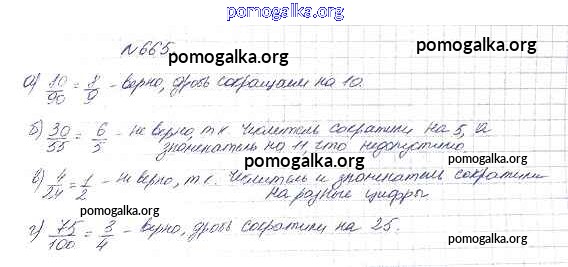 pomogalka.org
№665
pomogalka.org
а) 10/90 = 1/9 - верно, дробь сокращали на 10.
pomogalka.org
б) 30/55 = 6/5 - не верно, т.к. числитель сократили на 5, а
знаменатель на 11, что недопустимо.
pomogalka.org
в) 4/24 = 1/2 - не верно, т.к. числитель и знаменатель сократили
на разные цифры
pomogalka.org
г) 75/100 = 3/4 - верно, дробь сократили на 25.
pomogalka.org